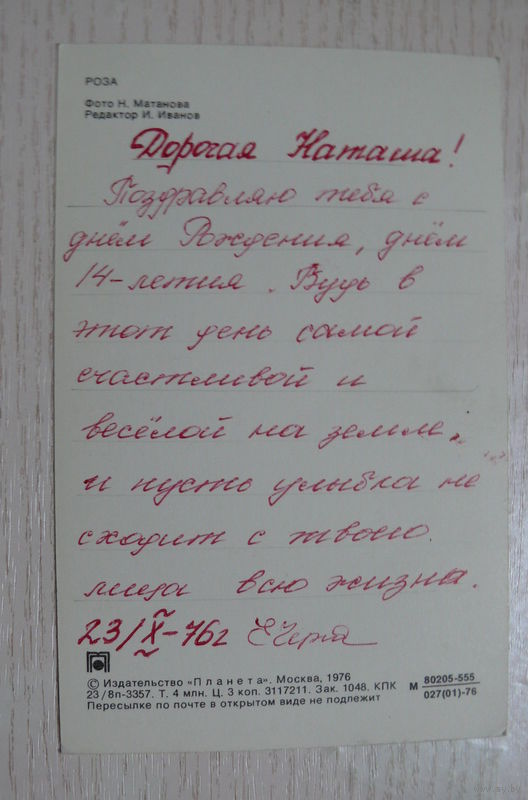 РОЗА
Фото Н. Матанова
Редактор И. Иванов
Дорогая Наташа!
Поздравляю тебя с
днём Рождения, днём
14-летия. Будь в
этот день самой
счастливой и
весёлой на земле,
и пусть улыбка не
сходит с твоего
лица всю жизнь.
23/X-76г
© Издательство «Планета». Москва, 1976
23/8п-3357. Т. 4 млн. Ц. 3 коп. 3117211. Зак. 1048. КПК
М 80205-555
027(01)-76
Пересылке по почте в открытом виде не подлежит